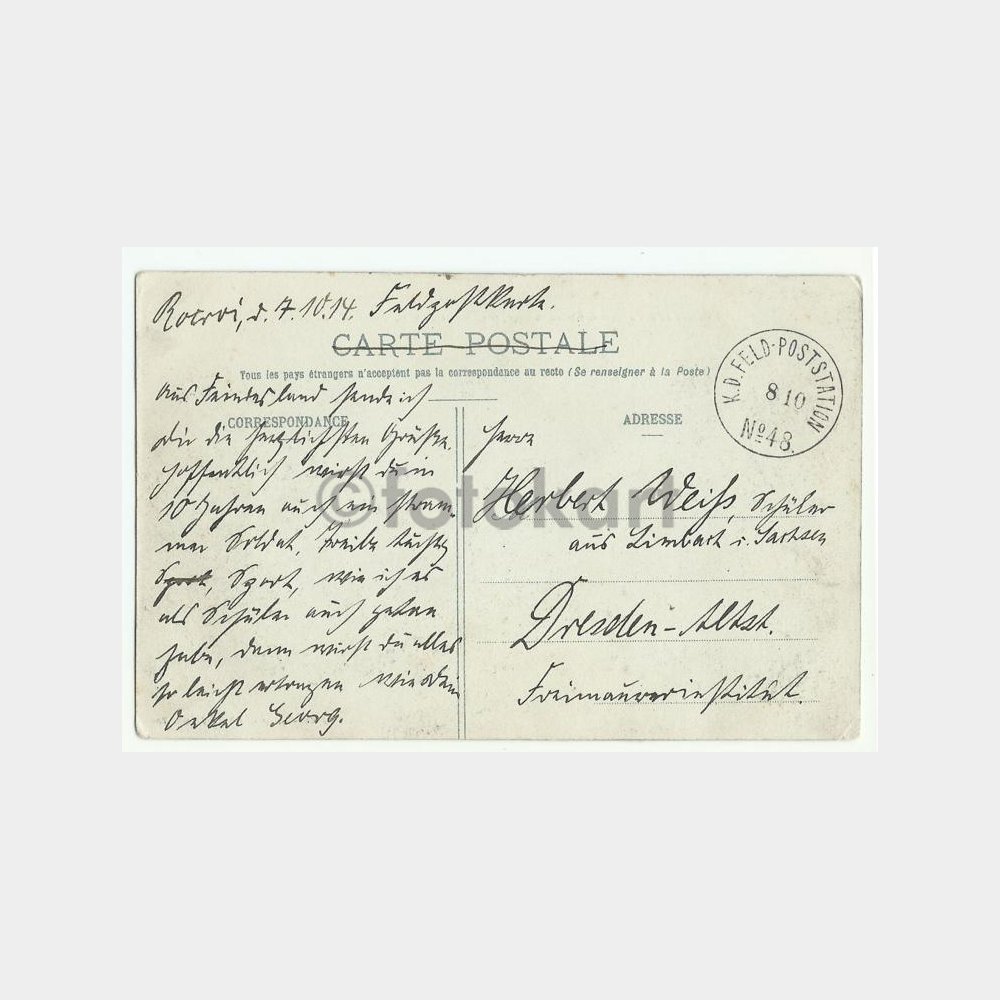 Rocroi, d. 7.10.14. Feldpostkarte.
CARTE POSTALE
Tous les pays étrangers n'acceptent pas la correspondance au recto (Se renseigner à la Poste)
K.D. FELD-POSTSTATION
8 10
No 48.
Aus Feindesland sende ich
CORRESPONDANCE
dir die herzlichsten Grüße.
Hoffentlich wirst du in
10 Jahren auch ein stram-
mer Soldat, treibe tüchtig
Sport, Sport, wie ich es
als Schüler auch getan
habe, dann wirst du alles
so leicht ertragen wie dein
Onkel Georg.
ADRESSE
Herrn
Herbert Weiß, Schüler
aus Limbach i. Sachsen
Dresden-Altst.
Freimaurerinstitut.
©fotokart